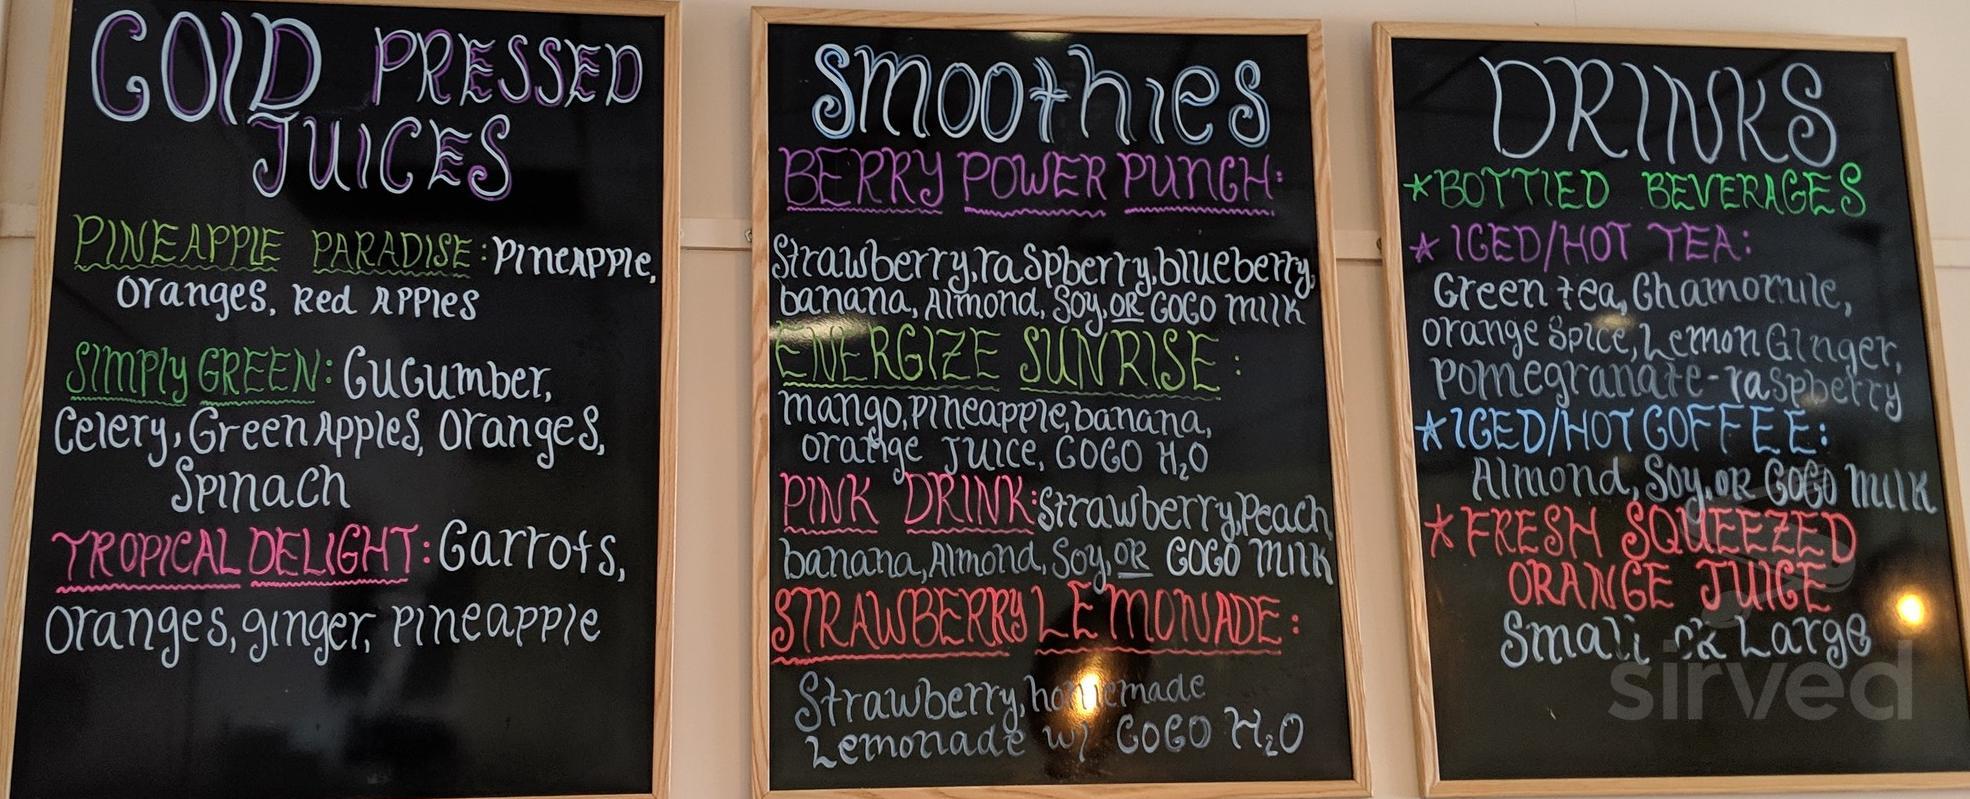 COLD PRESSED
JUICES
PINEAPPLE PARADISE: PINEAPPLE,
Oranges, Red Apples
SIMPLY GREEN: Cucumber,
Celery, Green Apples, Oranges,
Spinach
TROPICAL DELIGHT: Carrots,
Oranges, ginger, pineapple
Smoothies
BERRY POWER PUNCH:
Strawberry, raspberry, blueberry,
banana, Almond, Soy, OR COCO Milk
ENERGIZE SUNRISE:
mango, pineapple, banana,
orange Juice, COCO H₂O
PINK DRINK: Strawberry, Peach
banana, Almond, Soy, OR COCO Milk
STRAWBERRY LEMONADE:
Strawberry, homemade
Lemonade w/ COCO H₂O
DRINKS
* BOTTLED BEVERAGES
* ICED/HOT TEA:
Green tea, Chamomile,
Orange Spice, Lemon Ginger,
Pomegranate-raspberry
* ICED/HOT COFFEE:
Almond, Soy, OR COCO Milk
* FRESH SQUEEZED
ORANGE JUICE
Small OR Large
sirved